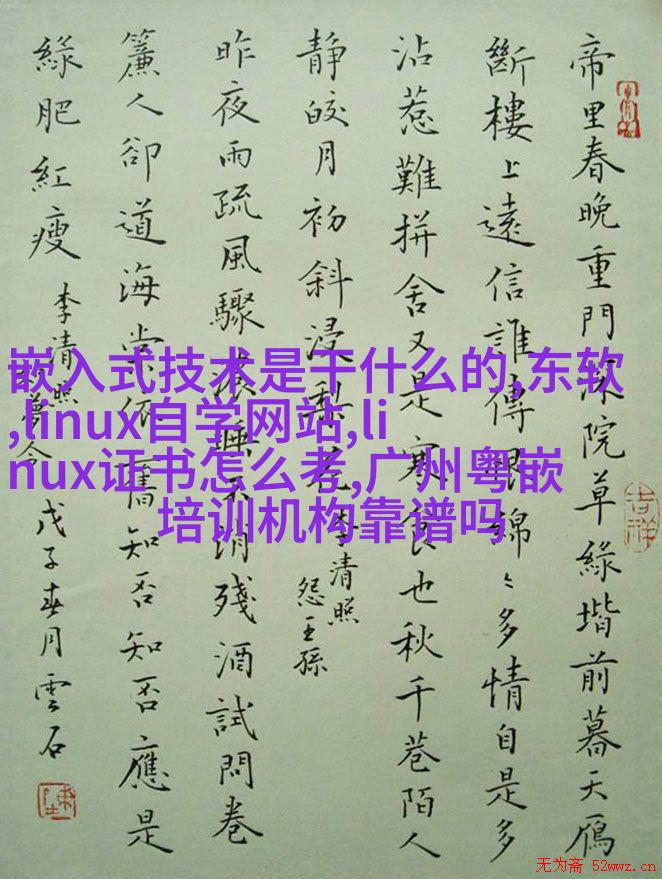 帝里春晚重門深院草緑堦前暮天鴈
斷樓上遠信誰傳恨綿〻多情自是多
沾惹難拼舍又是寒食也秋千巷陌人
静皎月初斜浸梨花
李清照
怨王孫
昨夜雨疏風驟濃睡不消殘酒試問卷
簾人卻道海棠依舊知否知否應是
緑肥紅瘦
李清照
如夢令
戊子春月雲石
吉祥
嵌入式技术是干什么的,东软
,linux自学网站,li
nux证书怎么考,广州粤嵌
培训机构靠谱吗
无为斋 52wwz.cn